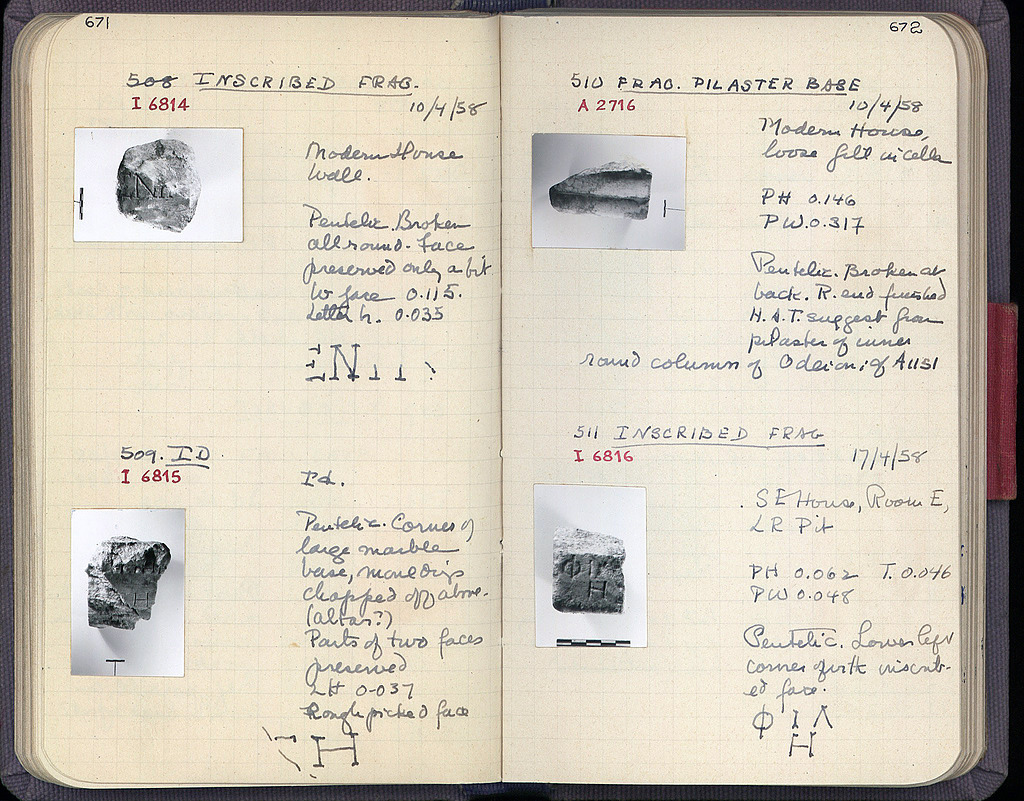 671
508 INSCRIBED FRAG.
I 6814
10/4/58
Modern House
Wall.
Pentelic. Broken
all round. Face
preserved only a bit
W face 0.115.
Letter h. 0.035
ΕΝ
509. ID
I 6815
Id.
Pentelic. Corner of
large marble
base, mouldings
chopped off above.
(altar?)
Parts of two faces
preserved
LH 0.037
Rough picked face
Η
672
510 FRAG. PILASTER BASE
A 2716
10/4/58
Modern House,
loose fill in cella
PH 0.146
PW. 0.317
Pentelic. Broken at
back. R. end finished
H.A.T. suggest from
pilaster of inner
round columns of Odeion; cf A1151
511 INSCRIBED FRAG
I 6816
17/4/58
SE House, Room E,
LR Pit
PH 0.062 T. 0.046
PW 0.048
Pentelic. Lower left
corner with inscrib-
ed face.
Φ Ι Λ
Η